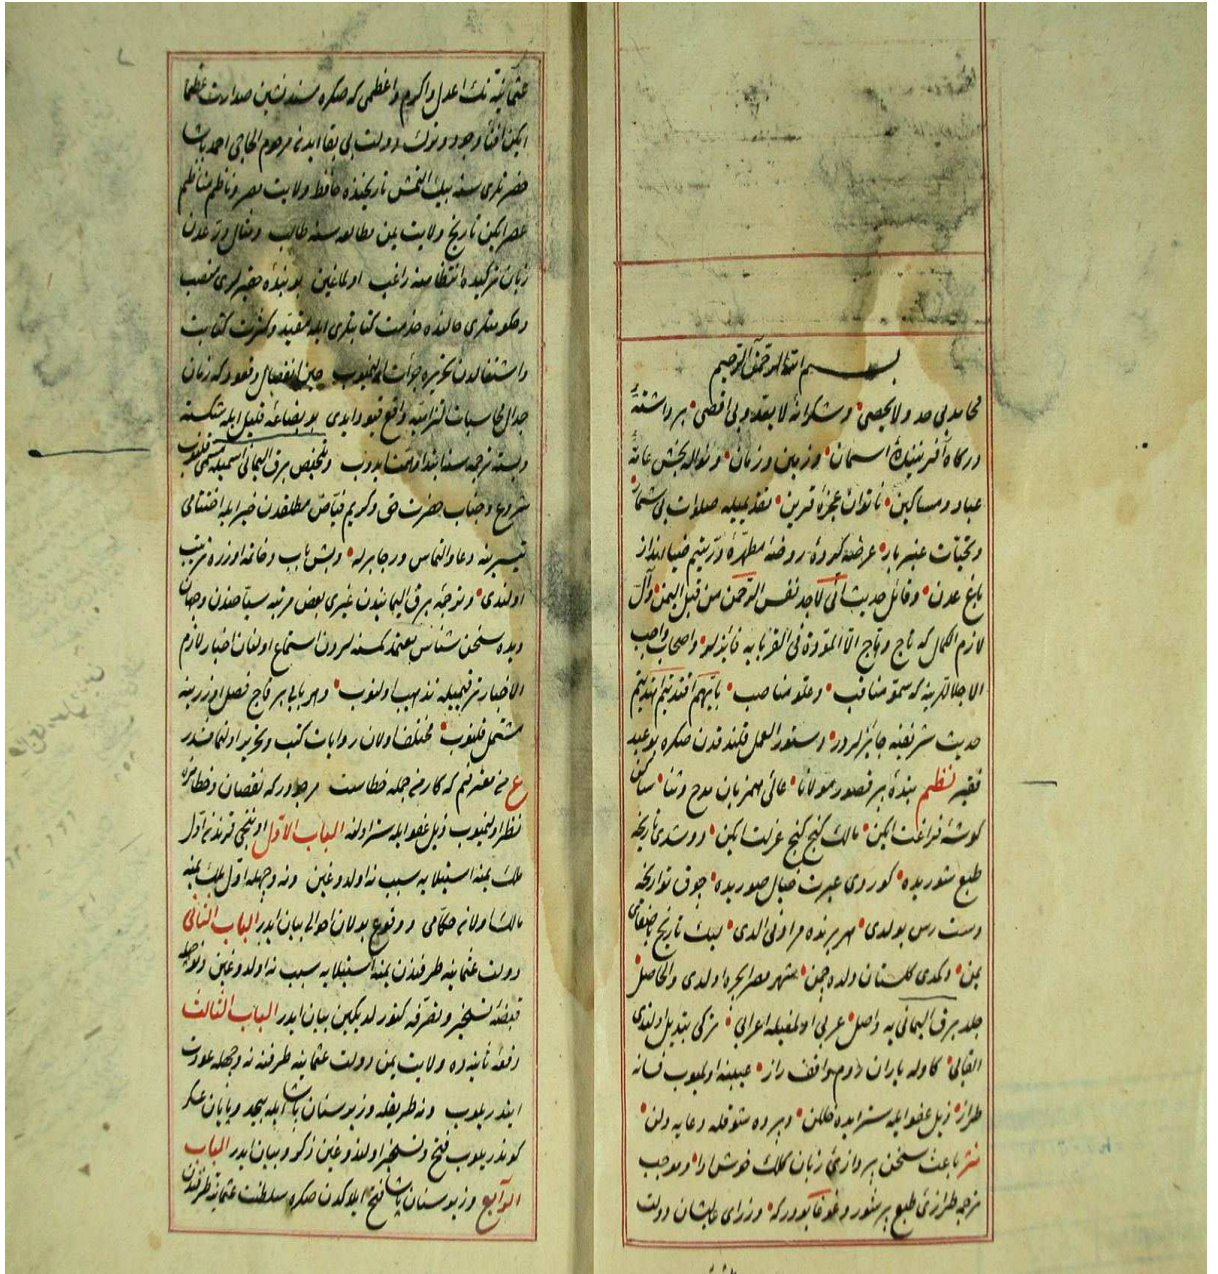 بسم الله الرحمن الرحيم
محامد بی حد ولا یحصی و شکرانهٔ لا یعد و بی اقصی بر داشتهٔ
درکاه آفرینندهٔ اسمان و زمین و زمان و نواله بخش عامهٔ
عباد و مساکین ناتوان عجزه قرین نقدیمیله صلوات بی شمار
و تحیات عنبر بار عرضه کردهٔ روضهٔ مطهرهٔ در یتیم ضیا انداز
باغ عدن و قائل حدیث انی لاجد نفس الرحمن من قبل الیمن و آل
لازم الکمال که تاج وهاج الا المودة فی القربا یه فایزلر و اصحاب واجب
الاجلاللرینه که سمو مناقب و علو مناصب بایهم اقتدیتم اهتدیتم
حدیث شریفنه جایزلردر دستور العمل قلندقدن صکره بو عبد
فقیر نظم بندهٔ پر قصور مولانا عالی مهر زبان مدح و ثنا ساکن
کوشهٔ فراغت ایکن مالک کنج کنج عزلت ایکن دوشدی تاریخه
طبع شوریده کوردی عبرت خیال صوریده چوق تواریخه
دست رس بولدی هر برنده مرادنی الدی لیک تاریخ صنعای
یمن و کمدی کلستان ولده چمن مشهر مصر ایجره اولدی والحاصل
جلد برق الیمانی یه واصل عربی اولمغیله اعرابی ترکی یه تبدیل اولندی
القابی کا وله یاران دوم واقف راز عیبینه اولمیوب فسانه
طراز ذیل عفو ایله ستر ایده خللن و یرده شوقله دعایه دلن
نثر باعث سخن پردازی زبان کلک خوش ادا و موجب
ترجمه طرازی طبع پر شور و غوغا بودر که وزرای عالیشان دولت
عثمانیه نک اعدل و اکرم و اعظمی که صکره مسند نشین صدارت عظما
ایکن افنای وجود و ترک دولت بی بقا ایدن مرحوم الحاجی احمد پاشا
حضرتلری سنه بیک التمش تاریخنده حافظ ولایت مصر و ناظم مناظم
عصر ایکن تاریخ ولایت یمن مطالعه سنه طالب و مثال در عدن
زبان ترکیده انتظامنه راغب اولماغین بو بندهٔ حقیرلری منصب
و حکومتلری حالنده خدمت کتابتلری ایله مقید و کثرت کتابت
و اشتغالدن تحریره جرأت اولنمیوب حین انفصال وقعوده که زمان
جدال محاسبات التزامیه واقع قیود ایدی بو بضاعه قلیل ایله شکسته
و بسته ترجمه سنا ابتدا و اهتمام ایدوب و تلخیص برق الیمانی اسمیله مسمی قلنوب
شروع و جناب حضرت حق و کریم فیاض مطلقدن خیر ایله اختتامی
تیسیرینه دعا و التماس و رجا برله و بش باب و خاتمه اوزره مرتب
اولندی و توجه برق الیمانیدن غیری بعض مرتبه سیاحتدن و جهان
دیده سخن شناس معتمد کمسنه لردن استماع اولنان اخبار لازم
الاخبار ترقیمیله تذهیب اولنوب و هر بابی بر قاچ فصل اوزرینه
مشتمل قلنوب مختلف اولان روایات کتب و تحریر اولنمشدر
ع من معترفم که کار من جمله خطاست مرجودر که نقصان و خطاسنه
نظر اولنمیوب ذیل عفو ایله ستر اولنه الباب الاول اونجی قرندن اول
ملک یمنه استیلایه سبب نه اولدوغین و نه وجهله اول ملک یمنه
مالک اولانه حکامی و وقوع بولان احوالی بیان ایدر الباب الثانی
دولت عثمانیه طرفندن یمنه استیلایه سبب نه اولدوغین و نه وجهله
قبضهٔ تسخیر و تصرفه کتورلدیکین بیان ایدر الباب الثالث
دفعهٔ ثانیه ده ولایت یمن دولت عثمانیه طرفنه نه وجهله عودت
ایتدریلوب و نه طریقله وزیر سنان پاشا ایله بیحد و پایان عسکر
کوندریلوب فتح و تسخیر اولندوغین ذکر و بیان ایدر الباب
الرابع وزیر سنان پاشا فتح ایلدکدن صکره سلطنت عثمانیه طرفندن